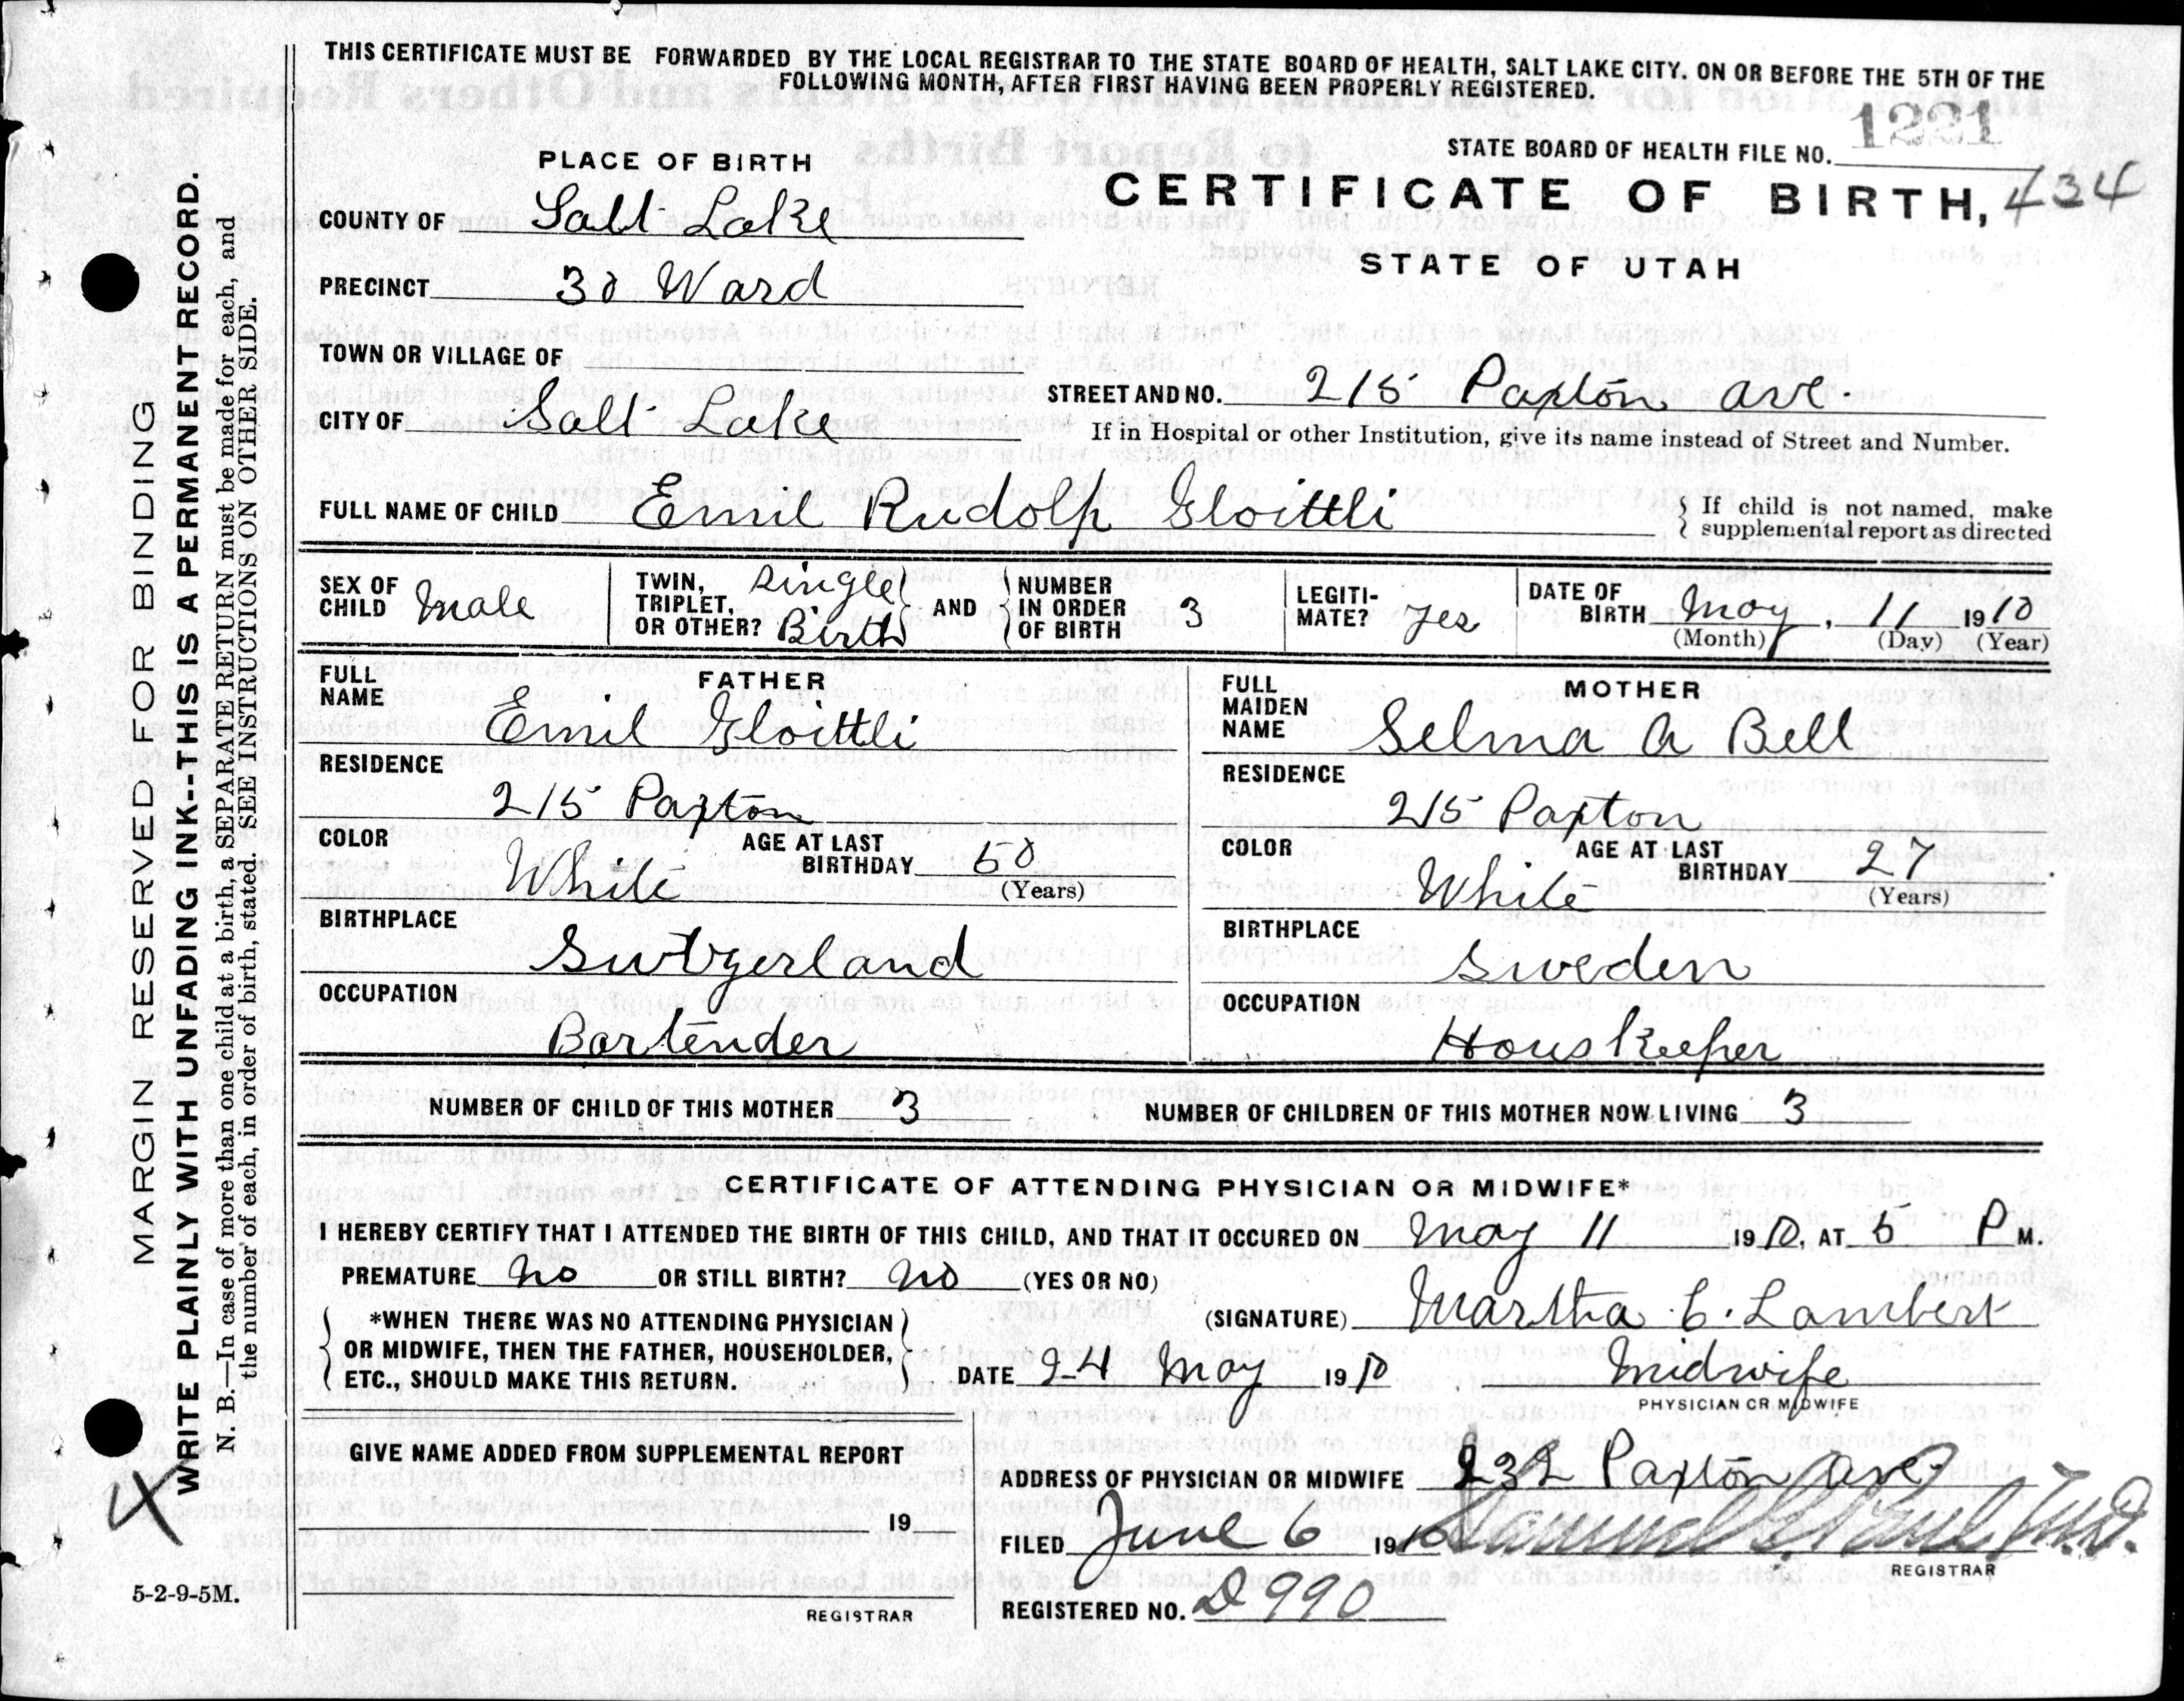 THIS CERTIFICATE MUST BE FORWARDED BY THE LOCAL REGISTRAR TO THE STATE BOARD OF HEALTH, SALT LAKE CITY. ON OR BEFORE THE 5TH OF THE
FOLLOWING MONTH, AFTER FIRST HAVING BEEN PROPERLY REGISTERED.
1221
STATE BOARD OF HEALTH FILE NO.
PLACE OF BIRTH
CERTIFICATE OF BIRTH, 434
STATE OF UTAH
COUNTY OF Salt Lake
PRECINCT 30 Ward
TOWN OR VILLAGE OF
STREET AND NO. 215 Paxton ave.
CITY OF Salt Lake
If in Hospital or other Institution, give its name instead of Street and Number.
FULL NAME OF CHILD Emil Rudolph Gloittli
If child is not named, make
supplemental report as directed
SEX OF CHILD Male
TWIN, TRIPLET, OR OTHER? Single Birth
AND NUMBER IN ORDER OF BIRTH 3
LEGITI-MATE? Yes
DATE OF BIRTH May, 11 1910
(Month) (Day) (Year)
FATHER
FULL NAME Emil Gloittli
RESIDENCE
215 Paxton
COLOR White AGE AT LAST BIRTHDAY 50
(Years)
BIRTHPLACE
Switzerland
OCCUPATION
Bartender
MOTHER
FULL MAIDEN NAME Selma A Bell
RESIDENCE
215 Paxton
COLOR White AGE AT LAST BIRTHDAY 27
(Years)
BIRTHPLACE
Sweden
OCCUPATION
Houskeeper
NUMBER OF CHILD OF THIS MOTHER 3 NUMBER OF CHILDREN OF THIS MOTHER NOW LIVING 3
CERTIFICATE OF ATTENDING PHYSICIAN OR MIDWIFE*
I HEREBY CERTIFY THAT I ATTENDED THE BIRTH OF THIS CHILD, AND THAT IT OCCURED ON May 11 1910, AT 5 P M.
PREMATURE no OR STILL BIRTH? no (YES OR NO)
*WHEN THERE WAS NO ATTENDING PHYSICIAN
OR MIDWIFE, THEN THE FATHER, HOUSEHOLDER,
ETC., SHOULD MAKE THIS RETURN.
(SIGNATURE) Martha C. Lambert
DATE 24 May 1910 Midwife
PHYSICIAN OR MIDWIFE
GIVE NAME ADDED FROM SUPPLEMENTAL REPORT
19
REGISTRAR
ADDRESS OF PHYSICIAN OR MIDWIFE 232 Paxton ave
FILED June 6 1910 M.D.
REGISTRAR
REGISTERED NO. D990
5-2-9-5M.
MARGIN RESERVED FOR BINDING
WRITE PLAINLY WITH UNFADING INK--THIS IS A PERMANENT RECORD.
N. B.—In case of more than one child at a birth, a SEPARATE RETURN must be made for each, and
the number of each, in order of birth, stated. SEE INSTRUCTIONS ON OTHER SIDE.
X